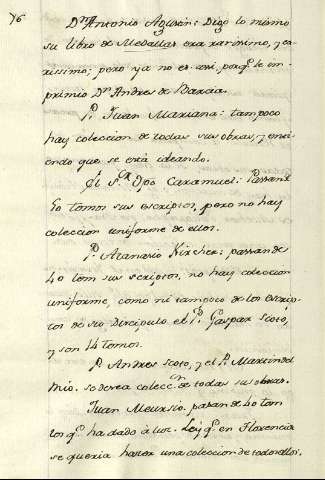 76
Dn. Antonio Agustin: Digo lo mismo
su libro de Medallas era rarissimo, y ca-
rissimo; pero ya no es assi, porq.e le im-
primio Dn. Andres de Barcia.
P. Juan Mariana: tampoco
hay coleccion de todas sus obras, y enti-
endo que se está ideando.
El S.or Opo Caramuel: Passan de
50 tomos sus escriptos, pero no hay
coleccion uniforme de ellos.
P. Atanasio Kircher: passan de
40 tom sus scriptos, no hay coleccion
uniforme, como ni tampoco de los escrip-
tos de su Discipulo el P. Gaspar Scoto,
y son 14 tomos.
P. Andres Scoto, y el P. Martin del
Rio. se desea colecc.on de todas sus obras.
Juan Meursio. pasan de 40 tom
los q.e ha dado à luz. Leý q.e en Florencia
se queria hacer una coleccion de todos ellos.